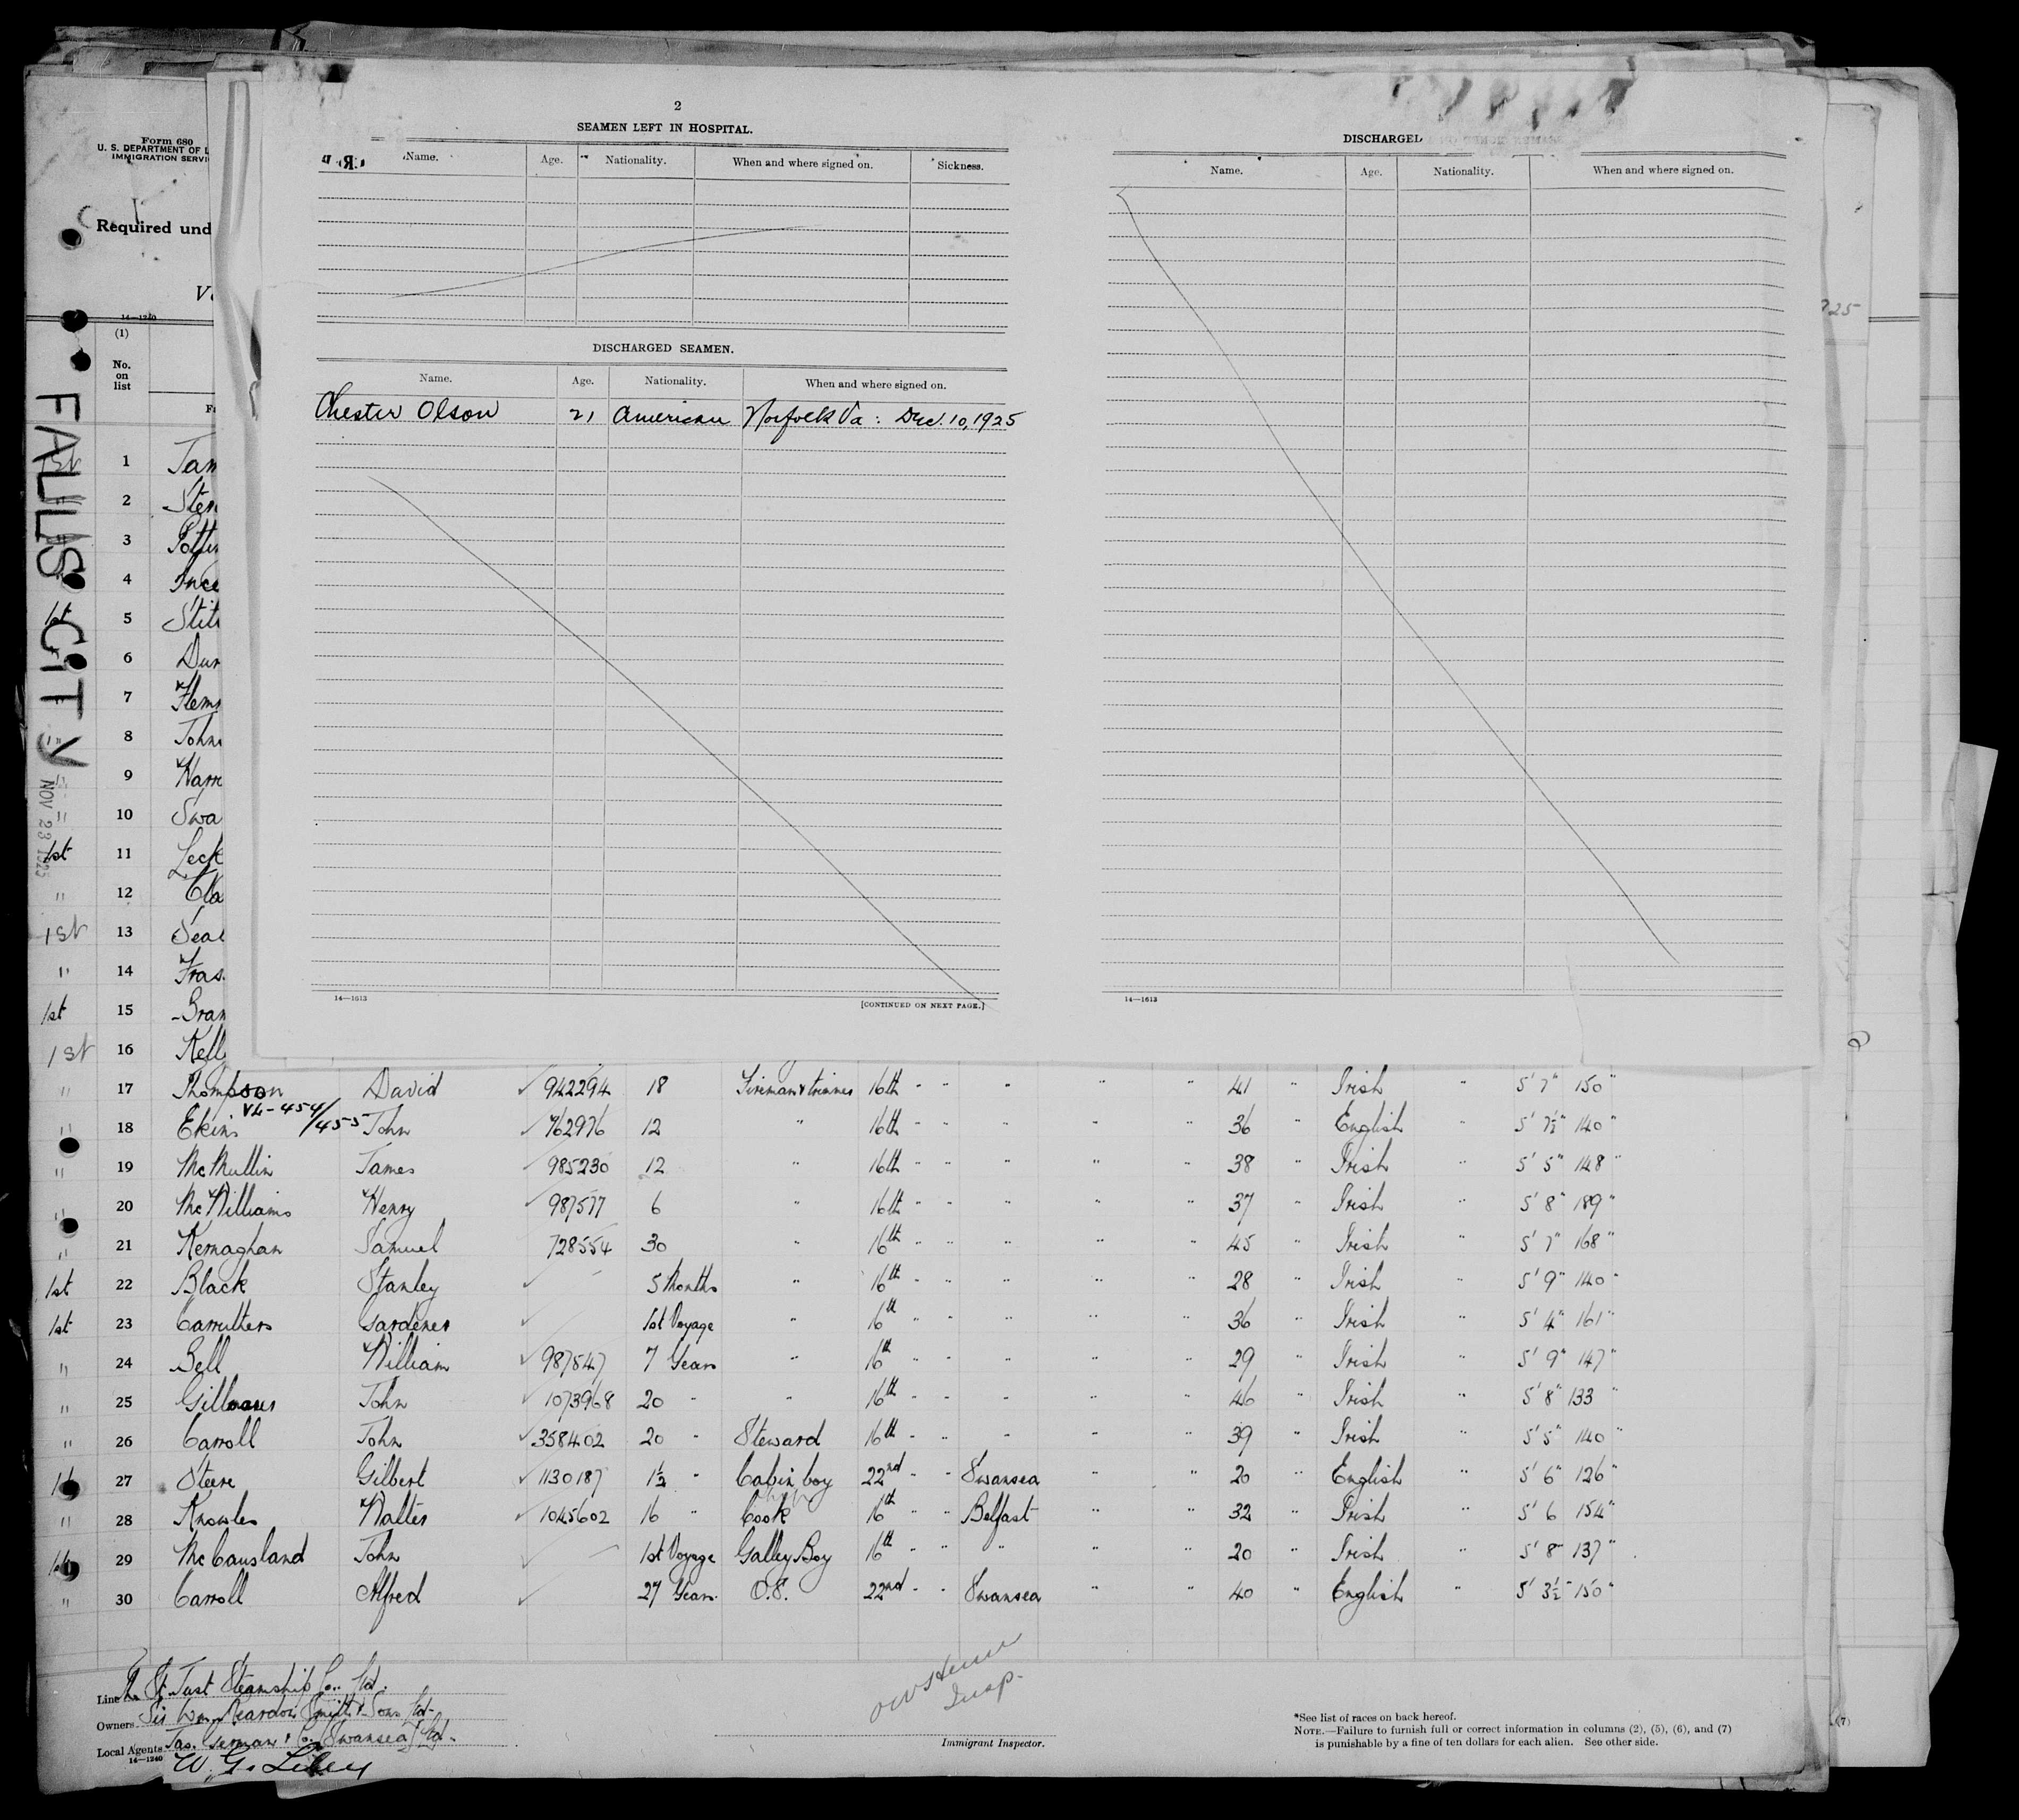 Form 680
U. S. DEPARTMENT OF L
IMMIGRATION SERVI
Required und
14—1240
(1)
No.
on
list
FALLS CITY
NOV 23 1925
2
SEAMEN LEFT IN HOSPITAL.
Name. Age. Nationality. When and where signed on. Sickness.
DISCHARGED SEAMEN.
Name. Age. Nationality. When and where signed on.
Chester Olson 21 American Norfolk Va : Dec. 10, 1925
14—1613 [CONTINUED ON NEXT PAGE.]
DISCHARGED
Name. Age. Nationality. When and where signed on.
14—1613
1st 1 Jam
2 Sten
3 Potter
4 Ince
1st 5 Stit
6 Dun
7 Flem
8 John
9 Harr
" 10 Swa
1st 11 Leck
" 12 Cla
1st 13 Seal
" 14 Fras
1st 15 Bran
1st 16 Kell
" 17 Thompson David ✓ 942294 18 Fireman & trimmer 16th " " " " " 41 " Irish " 5' 7" 150 "
VL-454/455
" 18 Ekins John ✓ 762976 12 " 16th " " " " " 36 " English " 5' 7½" 140 "
" 19 McMullin James ✓ 985230 12 " 16th " " " " " 38 " Irish " 5' 5" 148 "
" 20 McWilliams Henry ✓ 987577 6 " 16th " " " " " 37 " Irish " 5' 8" 189 "
" 21 Kernaghan Samuel 728554 30 " 16th " " " " " 45 " Irish " 5' 7" 168 "
1st 22 Black Stanley ✓ — 5 Months " 16th " " " " " 28 " Irish " 5' 9" 140 "
1st 23 Carrutters Gardener ✓ 1st Voyage " 16th " " " " " 36 " Irish " 5' 4" 161 "
" 24 Bell William ✓ 987547 7 Years " 16th " " " " " 29 " Irish " 5' 9" 147 "
" 25 John ✓ 1073968 20 " " 16th " " " " " 46 " Irish " 5' 8" 133 "
" 26 Carroll John ✓ 358402 20 " Steward 16th " " " " " 39 " Irish " 5' 5" 140 "
27 Steere Gilbert ✓ 1130187 1½ " Cabin boy 22nd " " Swansea " " 20 " English " 5' 6" 126 "
" 28 Knowles Walter ✓ 1045602 16 " Cook 16th " " Belfast " " 32 " Irish " 5' 6 154 "
29 McCausland John ✓ — 1st Voyage Galley Boy 16th " " " " " 20 " Irish " 5' 8" 137 "
" 30 Carroll Alfred ✓ 27 Years O.S. 22nd " " Swansea " " 40 " English " 5' 3½" 150 "
Line The St. Just Steamship Co. Ltd.
Owners Sir Wm Reardon Smith & Sons Ltd.
Local Agents Jas. German & Co. Swansea Ltd.
14—1240
Insp.
Immigrant Inspector.
*See list of races on back hereof.
NOTE.—Failure to furnish full or correct information in columns (2), (5), (6), and (7)
is punishable by a fine of ten dollars for each alien. See other side.
(7)